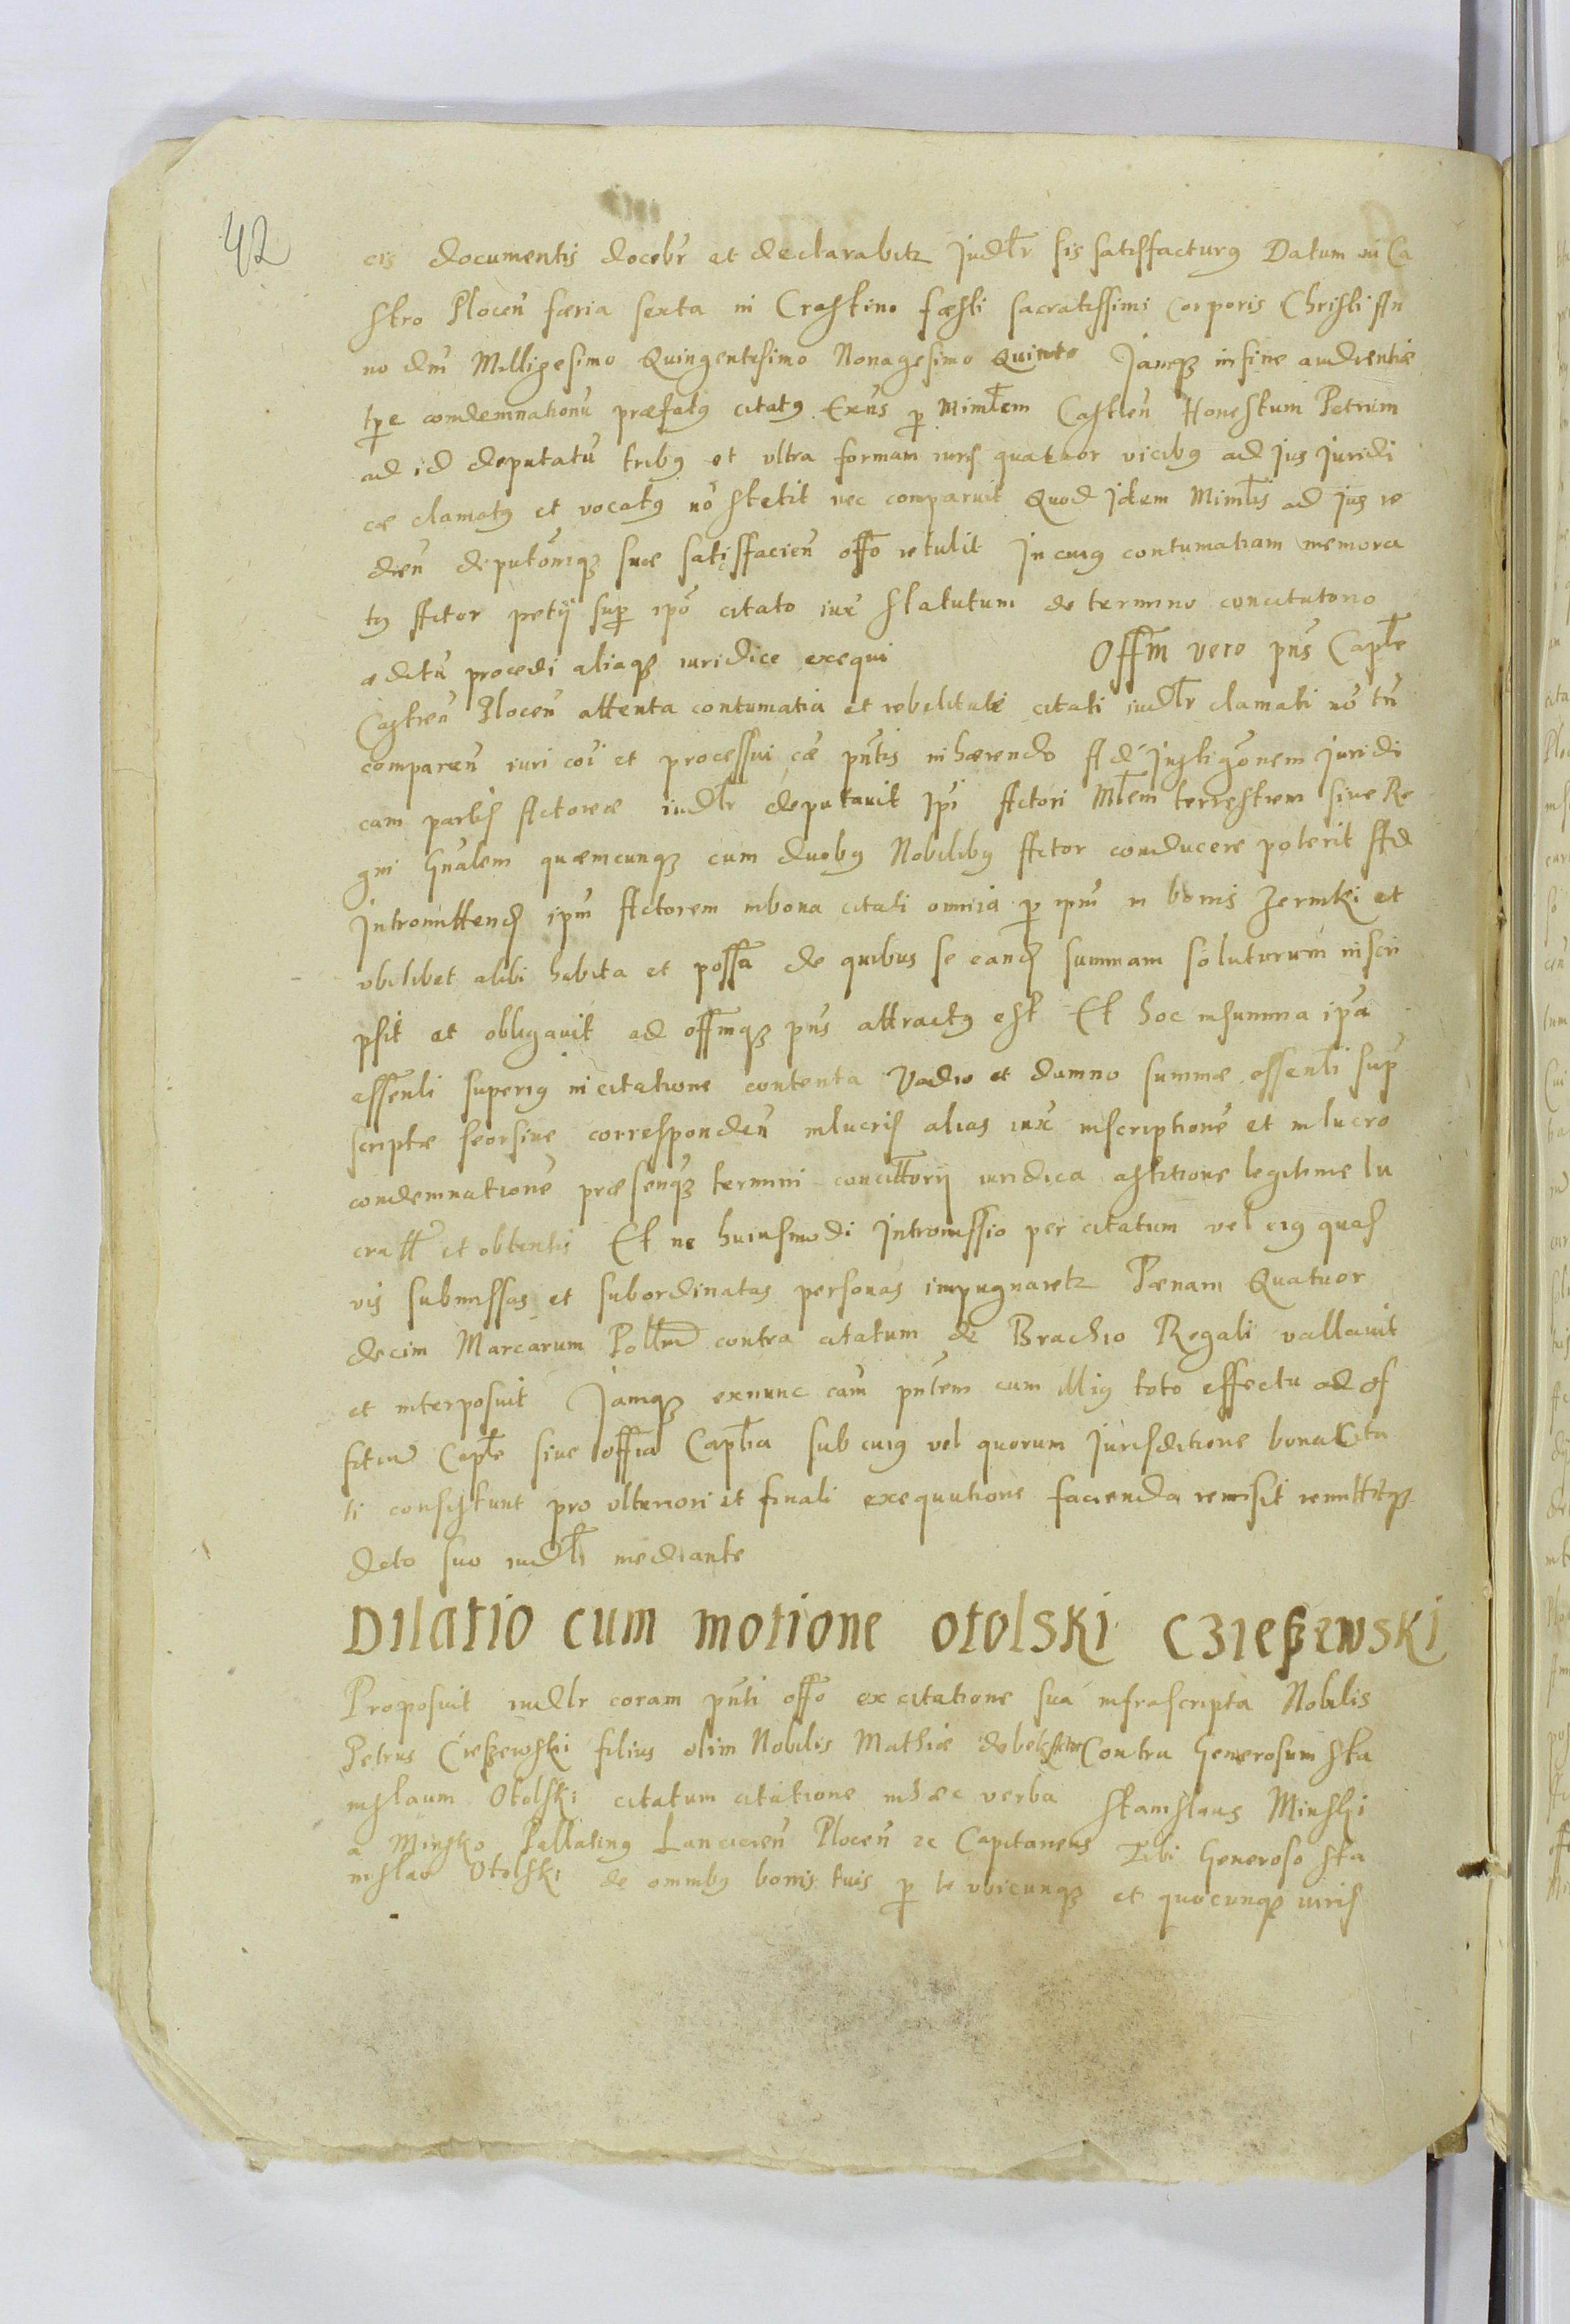 42
cis documentis docebr et declarabitz Judlr sis satisfacturq Datum in Ca
stro Plocen̄ færia sexta in Crastino fæsti sacratissimi Corporis Christi An
no dni Milligesimo Quingentesimo Nonagesimo Quinto Jamqz in fine audientiæ
tpe comdemnationū præfatq citatq Exn̄s p Minlem Castren̄ Honestum Petrum
ad id deputatū tribq et ultra formam iuris quatuor vicibq ad Jus Juridi
cæ clamatq et vocatq nō stetit nec comparuit Quod Idem Minlis ad Jus re
dien̄ deputōniqz suæ satisfacien̄ offo retulit In cuiq contumatiam memora
tq Actor petij sup ipō citato iux statutum de termino concitatorio
æditū procedi aliaqz iuridice exequi Offm vero pn̄s Caple
Castren̄ Plocen̄ attenta contumatia et rebelitate citati iudlr clamati nō tn̄
comparen̄ iuri coi et processui cæ pn̄tis inhærendo Ad Instigōnem Juridi
cam partis Actoreæ iudlr deputavit Ipi Actori Mlem terrestrem sive Re
gni Gn̄alem quæmcunqz cum duobq Nobilibq Actor conducere poterit Ad
Intromittend ipm Actorem in bona citati omnia p ipm in bonis Zernki et
ubilibet alibi habita et possa de quibus se eand summam soluturum inscri
psit et obligavit ad offmqz pn̄s attractq est Et hoc in summa ipa
essenli superiq in citatione contenta Vadio et damno summæ essenli sup
scriptæ seorsive corresponden̄ in lucris alias iux inscriptionē et in lucro
condemnationē præsenqz termini concittorij iuridica astitione legitime lu
cratt et obtentis Et ne huiusmodi Intromissio per citatum vel eiq quas
vis submissas et subordinatas personas impugnaretz Pænam Quatuor
decim Marcarum Pollm contra citatum de Brachio Regali vallavit
et interposuit Jamqz exnunc cam pn̄tem cum illiq toto effectu ad of
fitiū Caple sive offia Caplia sub cuiq vel quorum Jurisditione bona Cita
ti consistunt pro ulteriori et finali exequutione facienda remisit remittitqz
dcto suo iudli mediante
Dilatio cum motione Otolski Czieszewski
Proposuit iudlr coram pn̄ti offo ex citatione sua infrascripta Nobilis
Petrus Cieszewski filius olim Nobilis Mathiæ Contra Generosum Sta
nislaum Otolski citatum citatione in hæc verba Stanislaus Minski
a Minsko Pallatinq Lancicien̄ Plocen̄ zc Capitaneus Tibi Generoso Sta
nislao Otolski de omnibq bonis tuis p te ubicunqz et quocunqz iuris